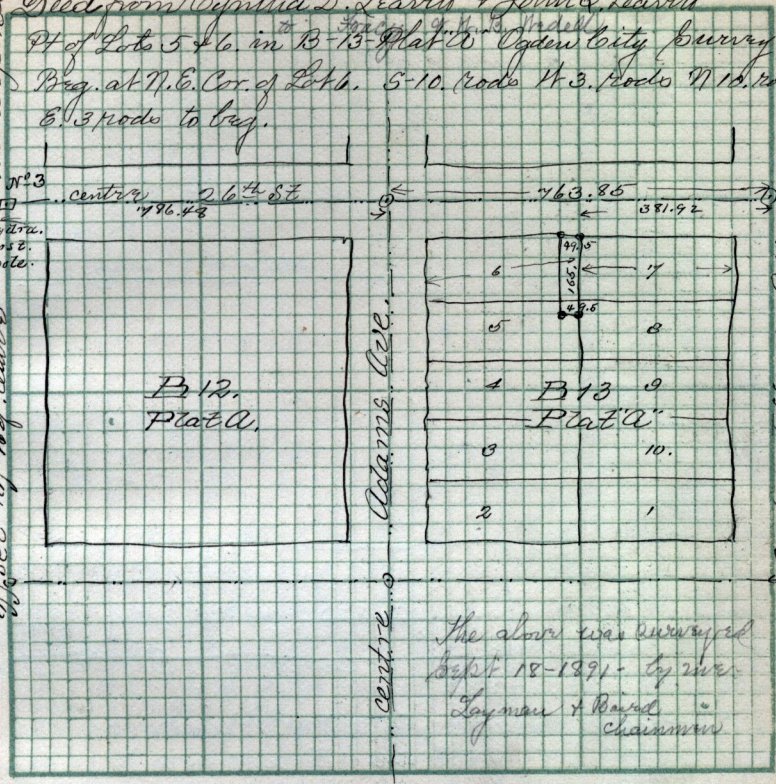 Deed from Cynthia D. Leavitt & John Q. Leavitt
to
Pt of Lots 5 & 6. in B-13-Plat A Ogden City Survey
Beg. at N.E. Cor. of Lot 6. S-10. rods W 3. rods N 10. ro
E. 3 rods to beg.
No 3
centre 26th St
796.48
763.85
381.92
49.5
165.
49.5
6
7
5
8
4
9
3
10.
2
1
B 12.
Plat A.
B 13
Plat "A"
Adams Ave.
centre
The above was surveyed
Sept 18-1891- by me
Layman & Baird
Chainmen